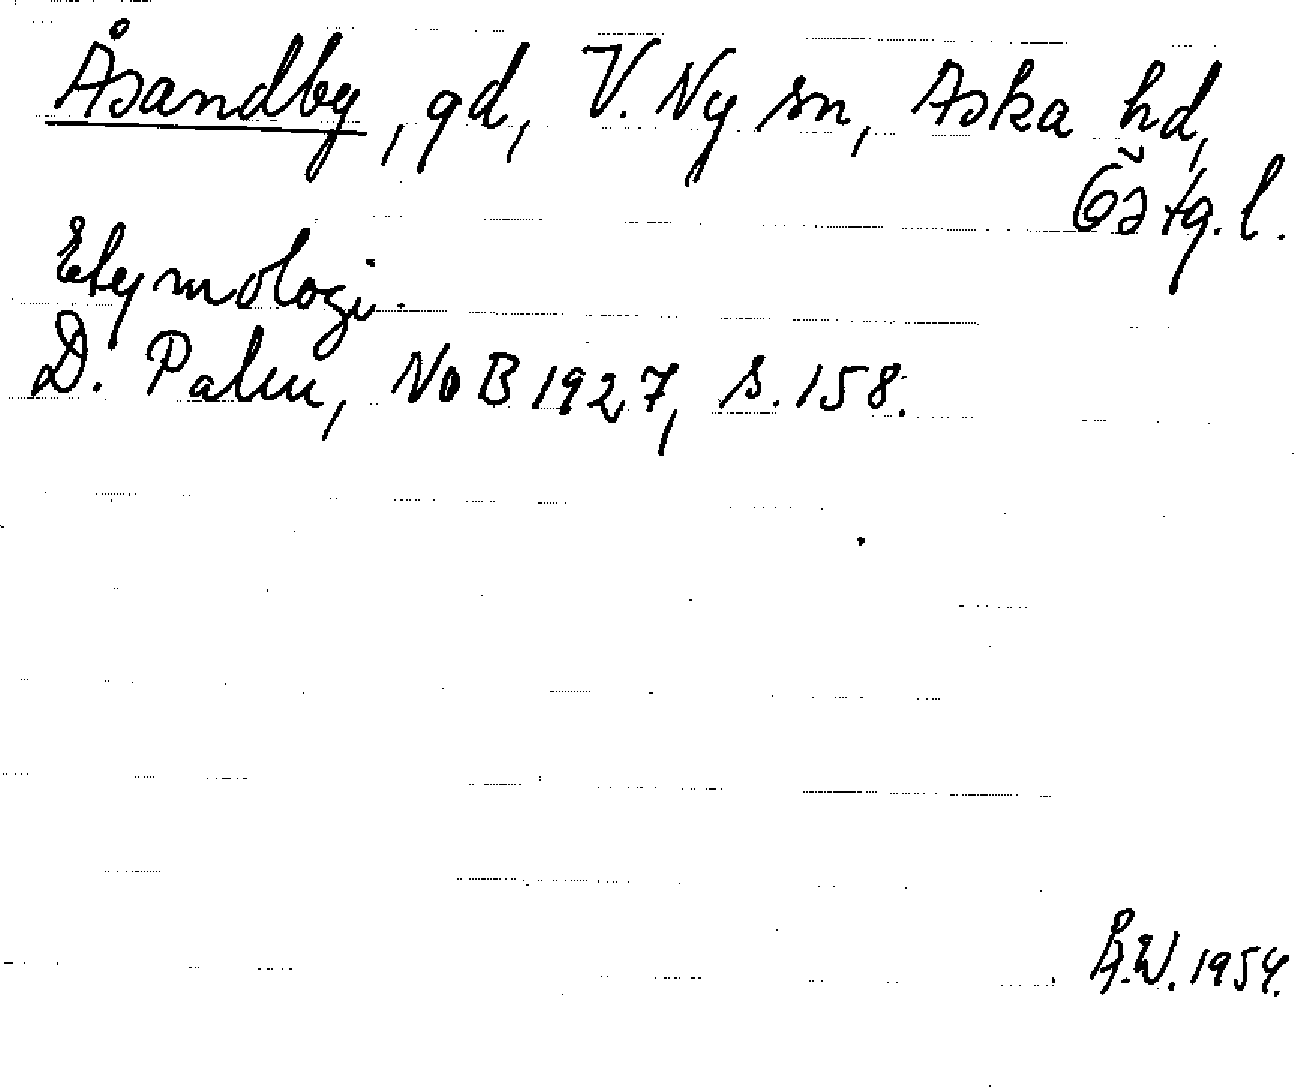 Åsandby, gd, V. Ny sn, Aska hd,
Östg. l.
Etymologi.
D. Palm, NoB 1927, s. 158.
Å.W. 1954.